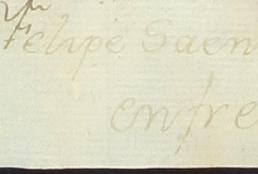 Felipe Saen
entre